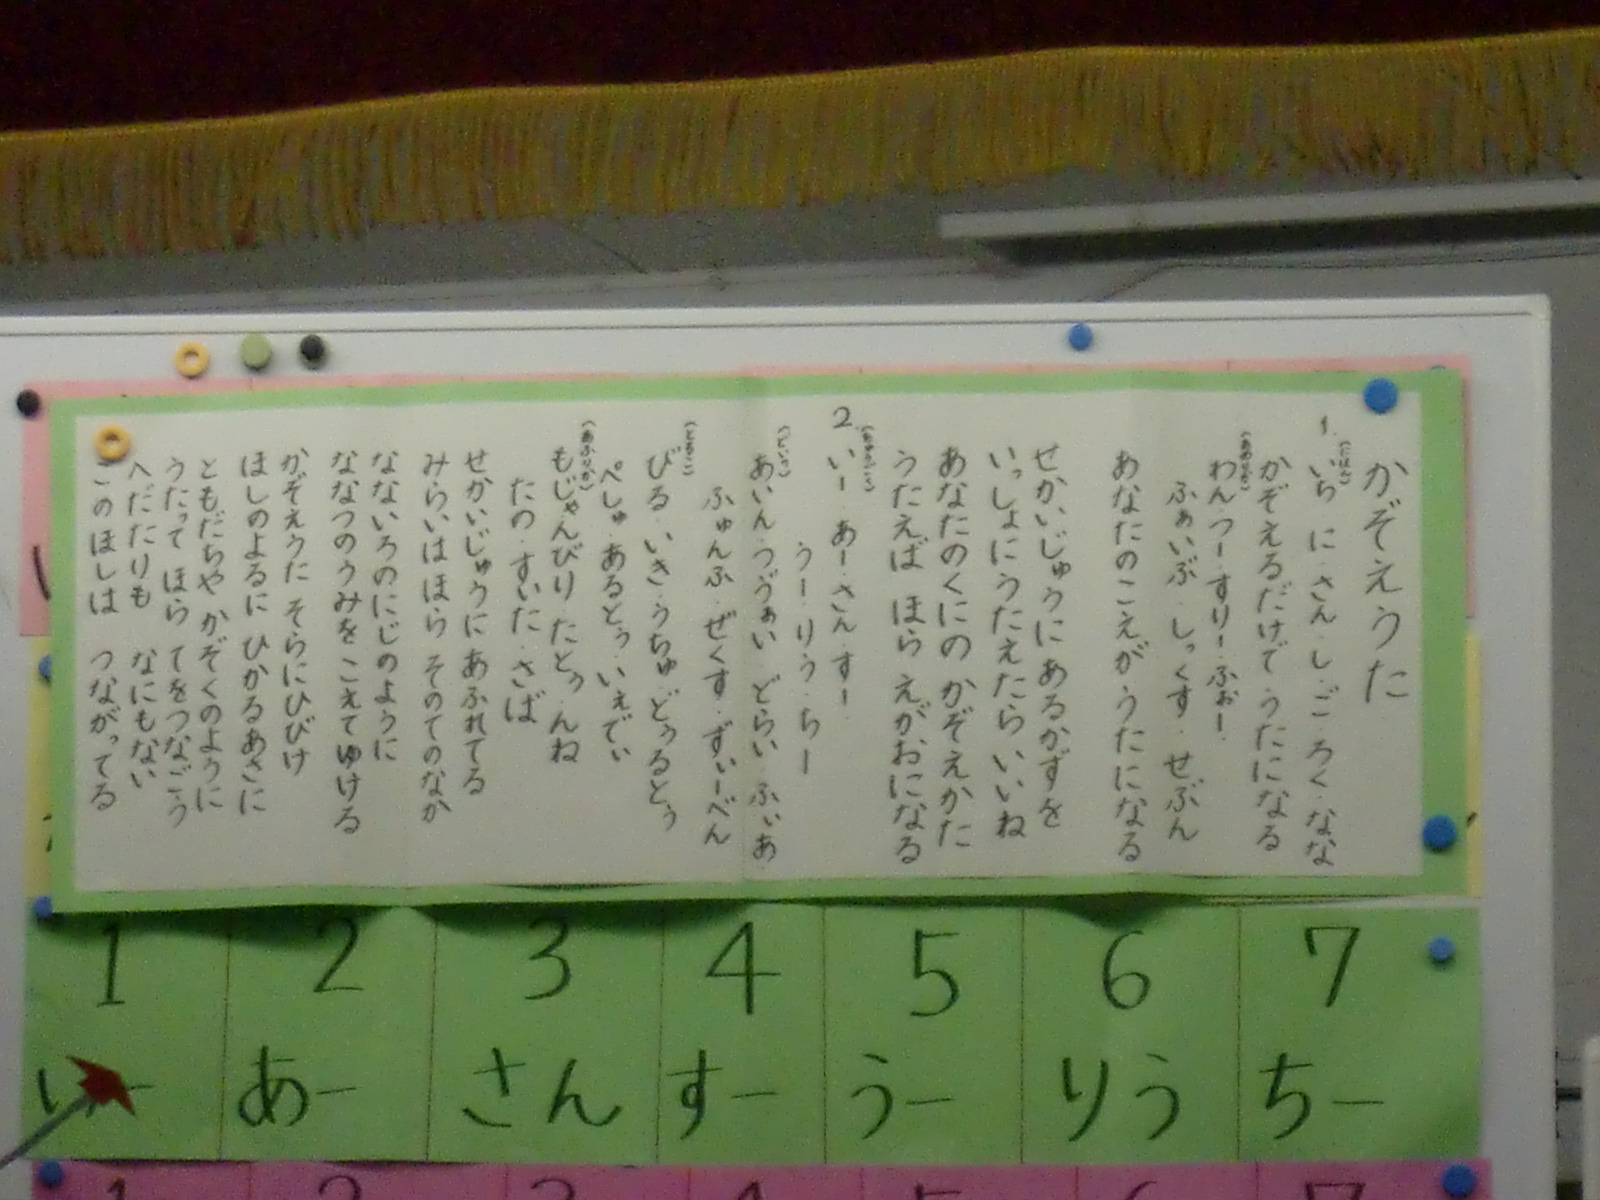 かぞえうた
1. いち に・さん・し・ごろく・なな
(にほん)
かぞえるだけで うたになる
わん・つー・すりー・ふぉー・
(あめりか)
ふぁいぶ・しっくす・せぶん
あなたのこえが うたになる
せかいじゅうに あるかずを
いっしょにうたえたら いいね
あなたのくにの かぞえかた
うたえば ほら えがおになる
2. いー・あー・さん・すー・
うー・りう・ちー
あいん・つゔぁい・どらい・ふぃあ
(どいつ)
ふゅんふ・ぜくす・ずぃーべん
びる・いき・うちゅ・どぅるとぅ
(とるこ)
ぺしゅ・あるとぅ・いぇでぃ
もじゃ・んびり・たとぅ・んね
(あふりか)
たの・すいた・さば
せかいじゅうに あふれてる
みらいは ほら そのてのなか
なないろのにじのように
ななつのうみを こえてゆける
かぞえうた そらにひびけ
ほしのよるに ひかるあさに
ともだちや かぞくのように
うたって ほら てをつなごう
へだたりも なにもない
このほしは つながってる
1 2 3 4 5 6 7
いー あー さん すー うー りう ちー